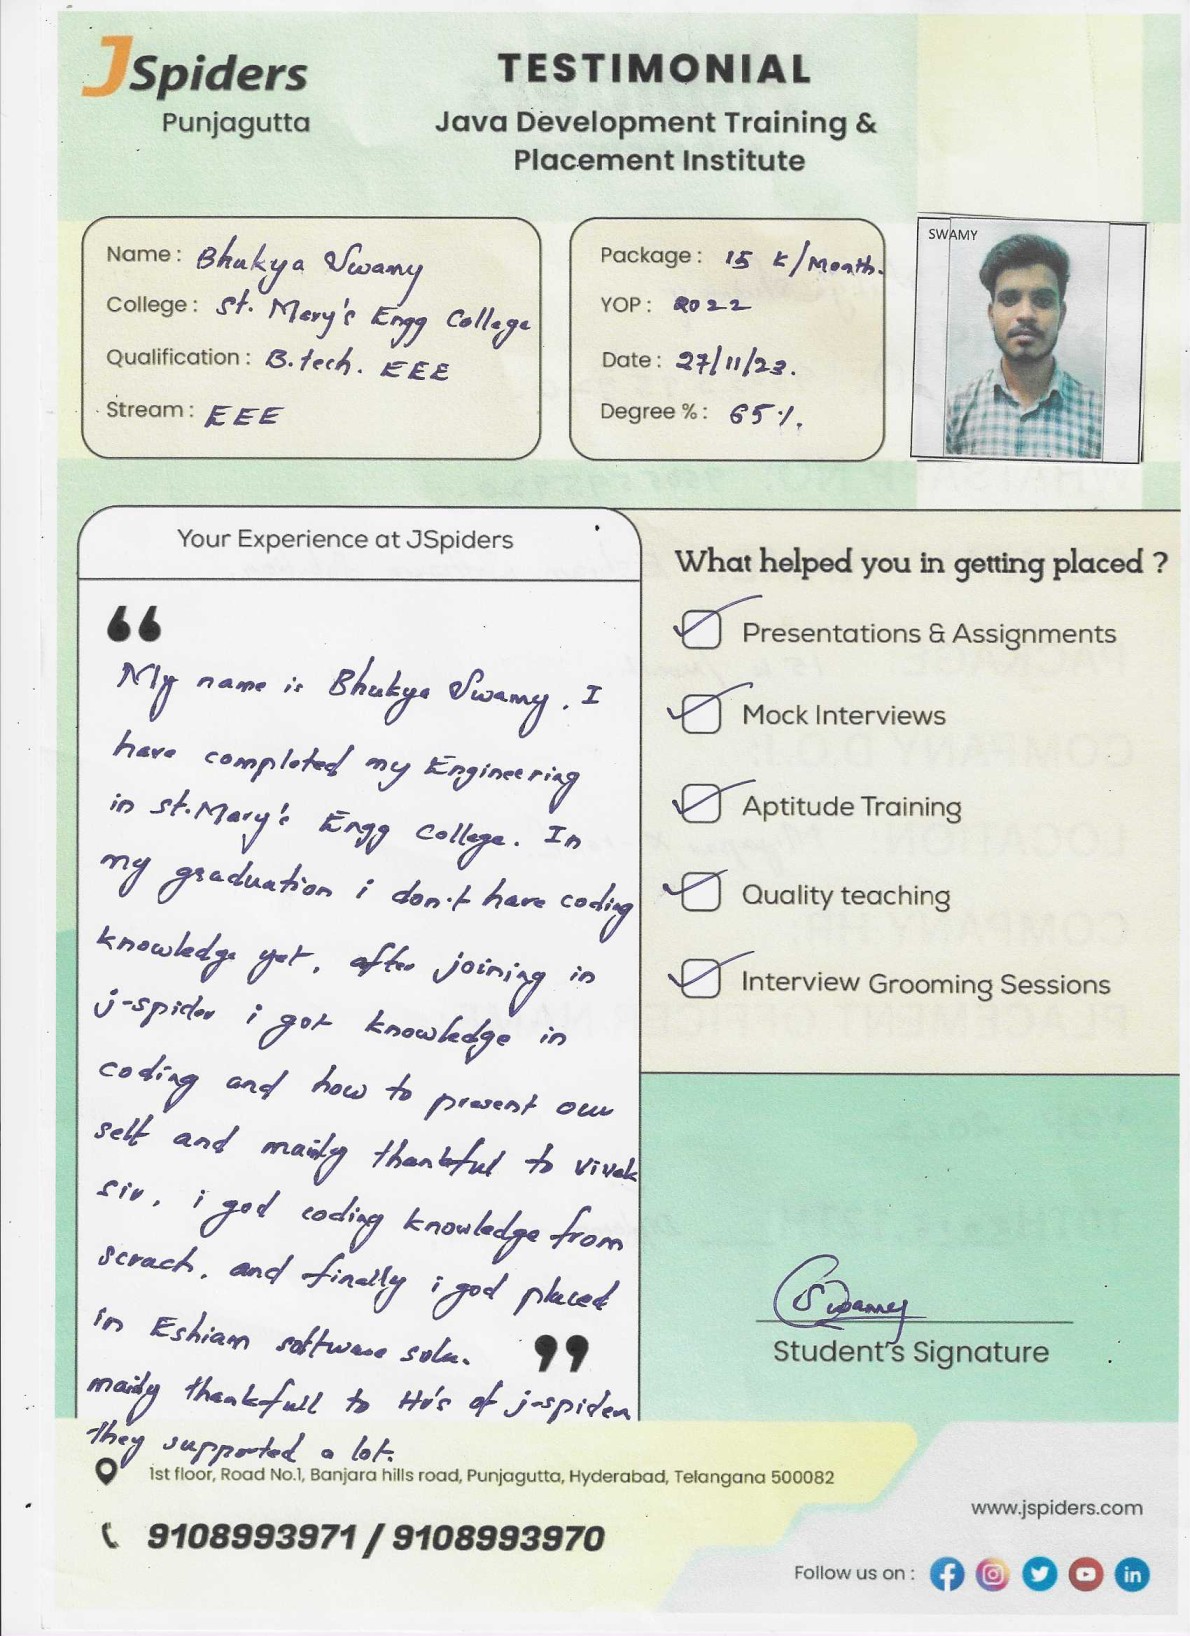 JSpiders
Punjagutta
TESTIMONIAL
Java Development Training &
Placement Institute
Name : Bhukya Swamy
College : St. Mery's Engg College
Qualification : B.tech. EEE
Stream : EEE
Package : 15 k/Month.
YOP : 2022
Date : 27/11/23.
Degree % : 65%.
SWAMY
Your Experience at JSpiders
“
My name is Bhukya Swamy. I
have completed my Engineering
in st.Mary's Engg College. In
my graduation i don't have coding
knowledge yet, after joining in
j-spider i got knowledge in
coding and how to present our
self and mainly thankful to vivek
sir. i god coding knowledge from
scrach. and finally i god placed
in Eshiam software solu.
”
mainly thankfull to Hr's of j-spiders
they supported a lot.
What helped you in getting placed ?
Presentations & Assignments
Mock Interviews
Aptitude Training
Quality teaching
Interview Grooming Sessions
Swamy
Student's Signature
1st floor, Road No.1, Banjara hills road, Punjagutta, Hyderabad, Telangana 500082
9108993971 / 9108993970
www.jspiders.com
Follow us on :